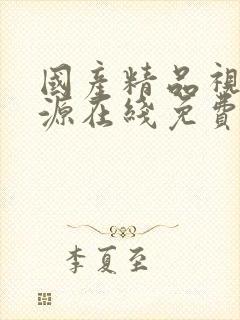 國產精品視
源在綫免費
李夏至